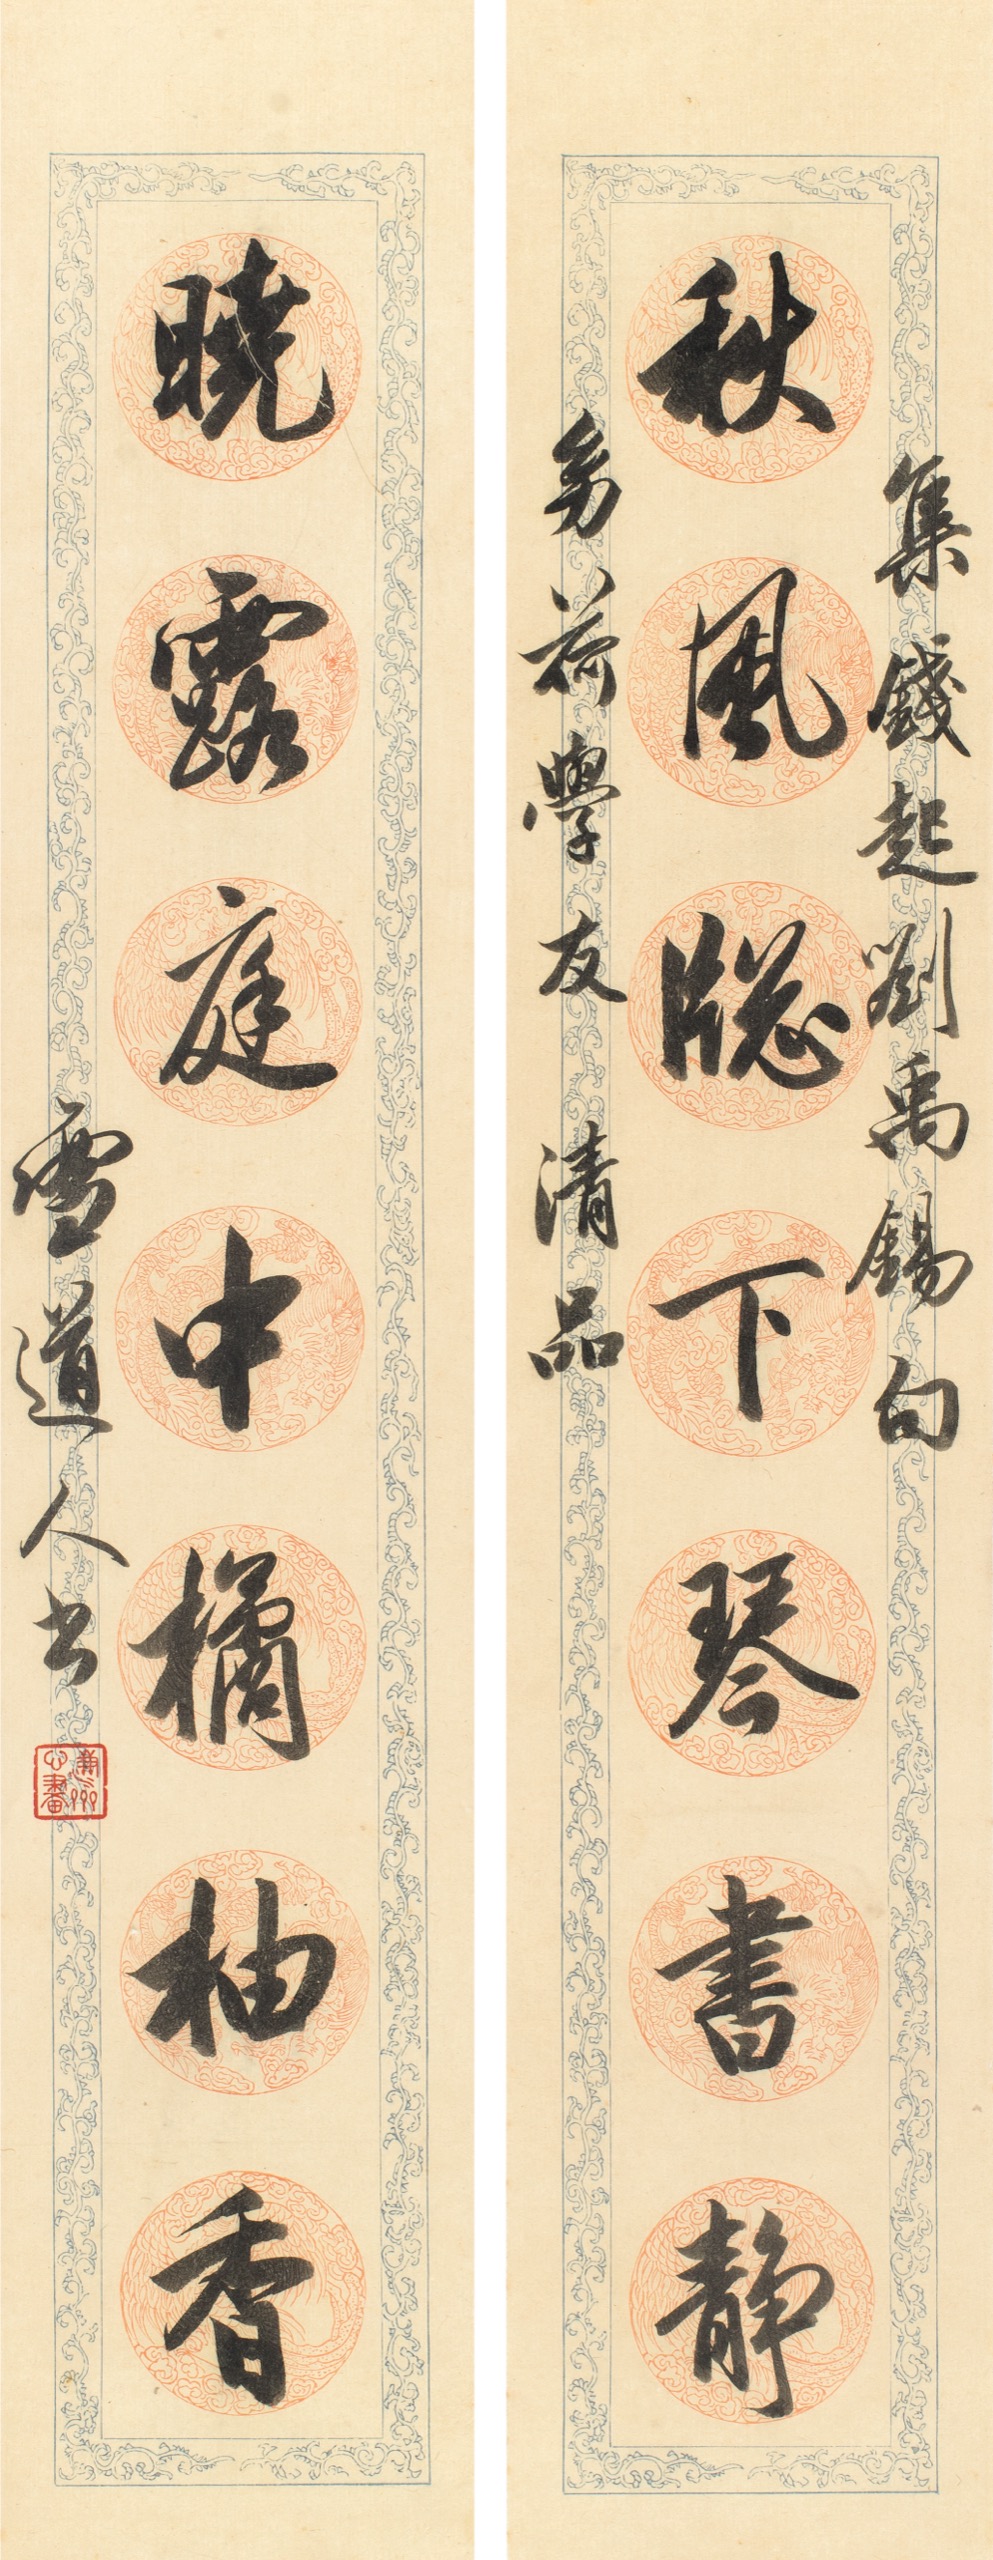 集錢起劉禹錫句
秋風牕下琴書静
荷學友清品
曉露庭中橘柚香
雪道人书